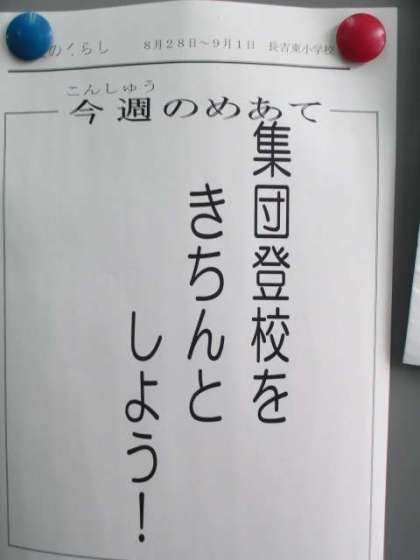 のくらし 8月28日～9月1日 長吉東小学校
こんしゅう
今週のめあて
集団登校を
きちんと
しよう！